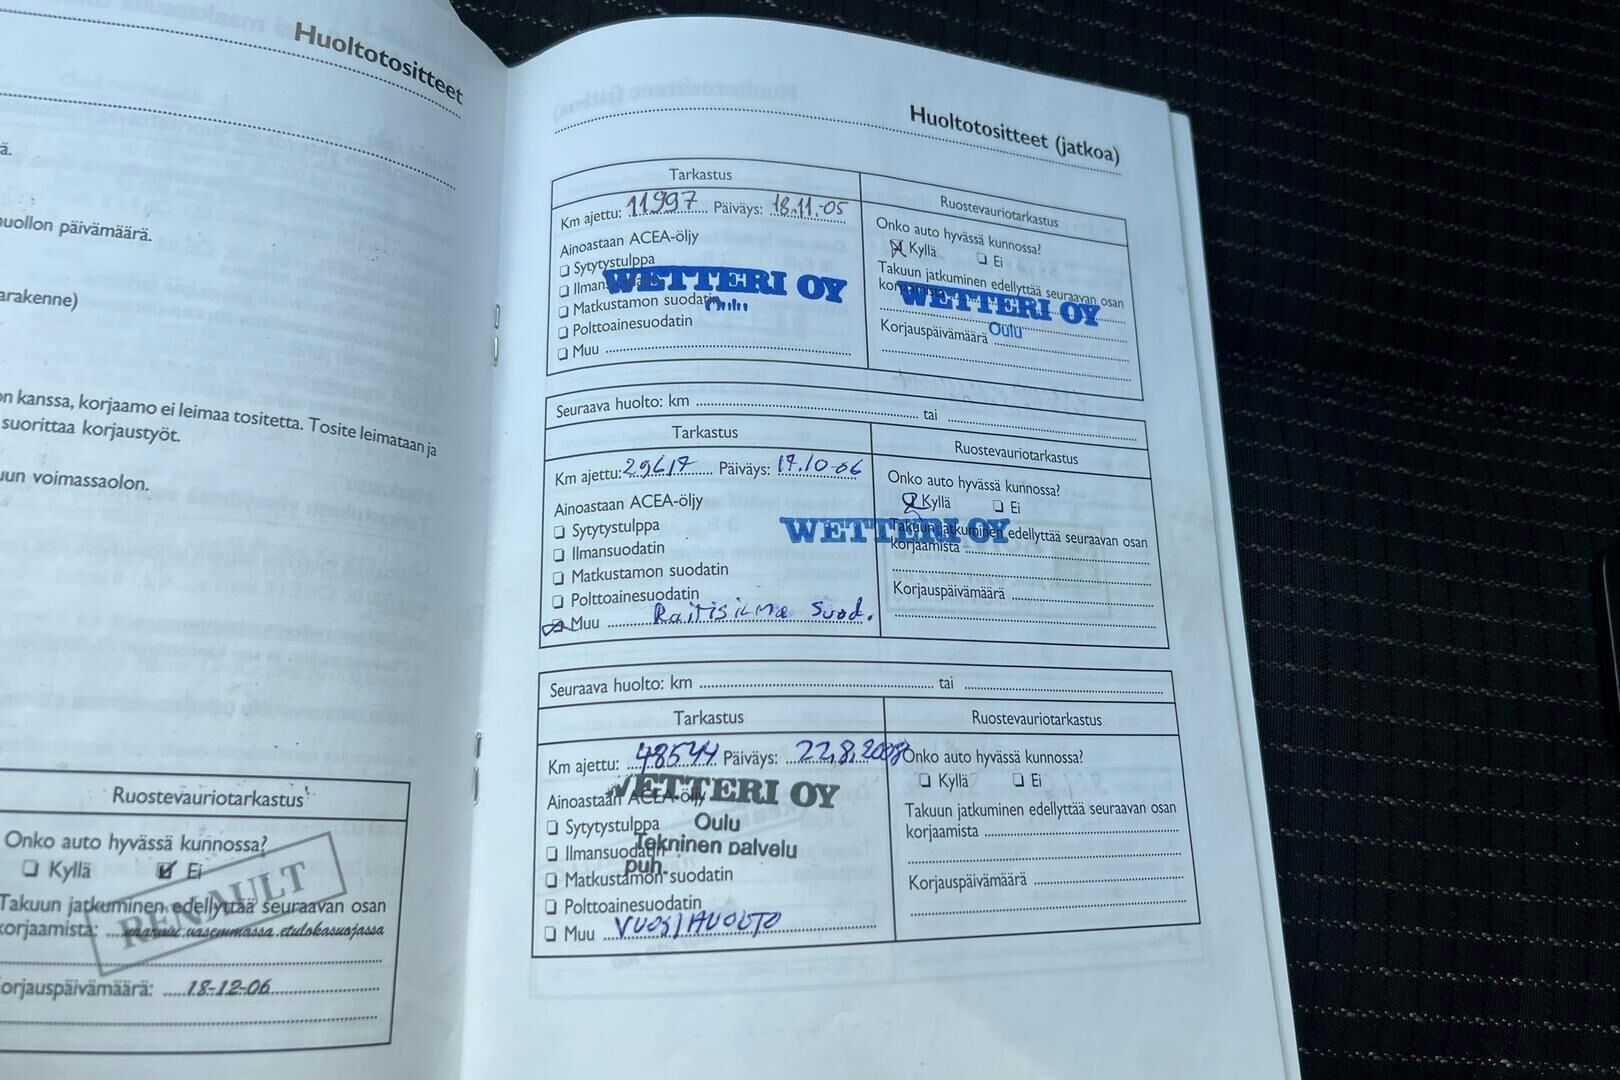 Huoltotositteet
ä.
uollon päivämäärä.
arakenne)
on kanssa, korjaamo ei leimaa tositetta. Tosite leimataan ja
suorittaa korjaustyöt.
uun voimassaolon.
Ruostevauriotarkastus
Onko auto hyvässä kunnossa?
Kyllä Ei
RENAULT
Takuun jatkuminen edellyttää seuraavan osan
korjaamista: vasemmassa etulokasuojassa
orjauspäivämäärä: 18-12-06
Huoltotositteet (jatkoa)
Tarkastus
Km ajettu: 11997 Päiväys: 18.11.-05
Ainoastaan ACEA-öljy
Sytytystulppa
WETTERI OY
Matkustamon suodatin
Oulu
Polttoainesuodatin
Muu
Ruostevauriotarkastus
Onko auto hyvässä kunnossa?
Kyllä Ei
Takuun jatkuminen edellyttää seuraavan osan
korjaamista
WETTERI OY
Korjauspäivämäärä
Oulu
Seuraava huolto: km tai
Tarkastus
Km ajettu: 29617 Päiväys: 17.10-06
Ainoastaan ACEA-öljy
Sytytystulppa
Ilmansuodatin
Matkustamon suodatin
Polttoainesuodatin
Muu Raitisilma suod.
WETTERI OY
Ruostevauriotarkastus
Onko auto hyvässä kunnossa?
Kyllä Ei
Takuun jatkuminen edellyttää seuraavan osan
korjaamista
Korjauspäivämäärä
Seuraava huolto: km tai
Tarkastus
Km ajettu: 48544 Päiväys: 22.8.2008
WETTERI OY
Ainoastaan ACEA-öljy
Sytytystulppa
Oulu
Ilmansuodatin
Tekninen palvelu
puh.
Matkustamon suodatin
Polttoainesuodatin
Muu VUOSIHUOLTO
Ruostevauriotarkastus
Onko auto hyvässä kunnossa?
Kyllä Ei
Takuun jatkuminen edellyttää seuraavan osan
korjaamista
Korjauspäivämäärä